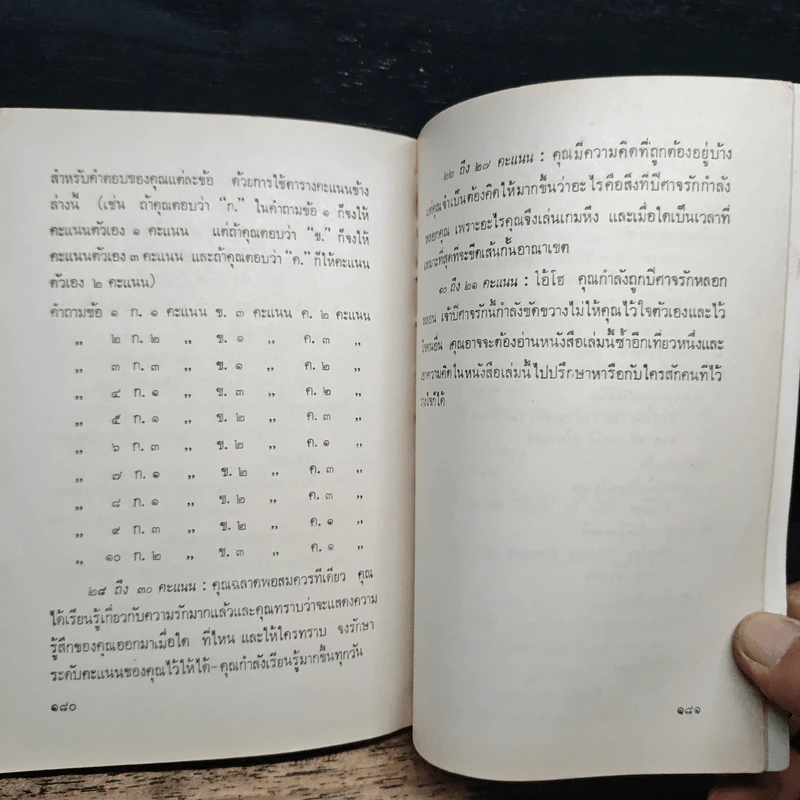 สำหรับคำตอบของคุณแต่ละข้อ ด้วยการใช้ตารางคะแนนข้าง
ล่างนี้ (เช่น ถ้าคุณตอบว่า “ก.” ในคำถามข้อ ๑ ก็จงให้
คะแนนตัวเอง ๑ คะแนน แต่ถ้าคุณตอบว่า “ข.” ก็จงให้
คะแนนตัวเอง ๓ คะแนน และถ้าคุณตอบว่า “ค.” ก็ให้คะแนน
ตัวเอง ๒ คะแนน)
คำถามข้อ ๑ ก. ๑ คะแนน ข. ๓ คะแนน ค. ๒ คะแนน
„ ๒ ก. ๒ „ ข. ๑ „ ค. ๓ „
„ ๓ ก. ๓ „ ข. ๑ „ ค. ๒ „
„ ๔ ก. ๑ „ ข. ๓ „ ค. ๒ „
„ ๕ ก. ๑ „ ข. ๒ „ ค. ๓ „
„ ๖ ก. ๓ „ ข. ๒ „ ค. ๑ „
„ ๗ ก. ๑ „ ข. ๒ „ ค. ๓ „
„ ๘ ก. ๑ „ ข. ๒ „ ค. ๓ „
„ ๙ ก. ๓ „ ข. ๒ „ ค. ๑ „
„ ๑๐ ก. ๒ „ ข. ๓ „ ค. ๑ „
๒๘ ถึง ๓๐ คะแนน : คุณฉลาดพอสมควรทีเดียว คุณ
ได้เรียนรู้เกี่ยวกับความรักมากแล้วและคุณทราบว่าจะแสดงความ
รู้สึกของคุณออกมาเมื่อใด ที่ไหน และให้ใครทราบ จงรักษา
ระดับคะแนนของคุณไว้ให้ได้-คุณกำลังเรียนรู้มากขึ้นทุกวัน
๑๘๐
๒๒ ถึง ๒๗ คะแนน : คุณมีความคิดที่ถูกต้องอยู่บ้าง
แต่คุณจำเป็นต้องคิดให้มากขึ้นว่าอะไรคือสิ่งที่ปีศาจรักกำลัง
หลอกคุณ เพราะอะไรคุณจึงเล่นเกมหึง และเมื่อใดเป็นเวลาที่
เหมาะที่สุดที่จะขีดเส้นกั้นอาณาเขต
๑๐ ถึง ๒๑ คะแนน : โอ้โฮ คุณกำลังถูกปีศาจรักหลอก
หลอน เจ้าปีศาจรักนี้กำลังขัดขวางไม่ให้คุณไว้ใจตัวเองและไว้
ใจคนอื่น คุณอาจจะต้องอ่านหนังสือเล่มนี้ซ้ำอีกเที่ยวหนึ่งและ
เอาความคิดในหนังสือเล่มนี้ไปปรึกษาหารือกับใครสักคนที่ไว้
วางใจได้
๑๘๑